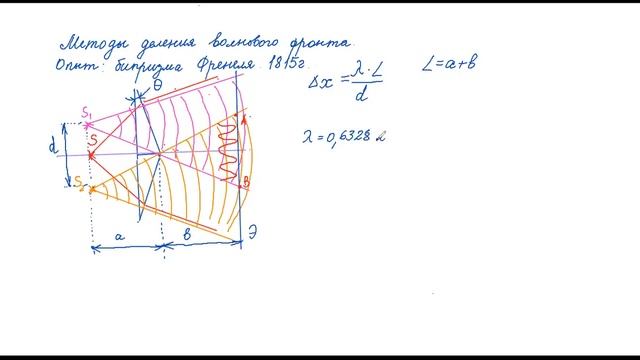 Методы деления волнового фронта.
Опыт: бипризма Френеля. 1815г.
Δx = λ·L / d
L=a+b
λ=0,6328
θ
S₁
S
S₂
d
B
Э
a
b